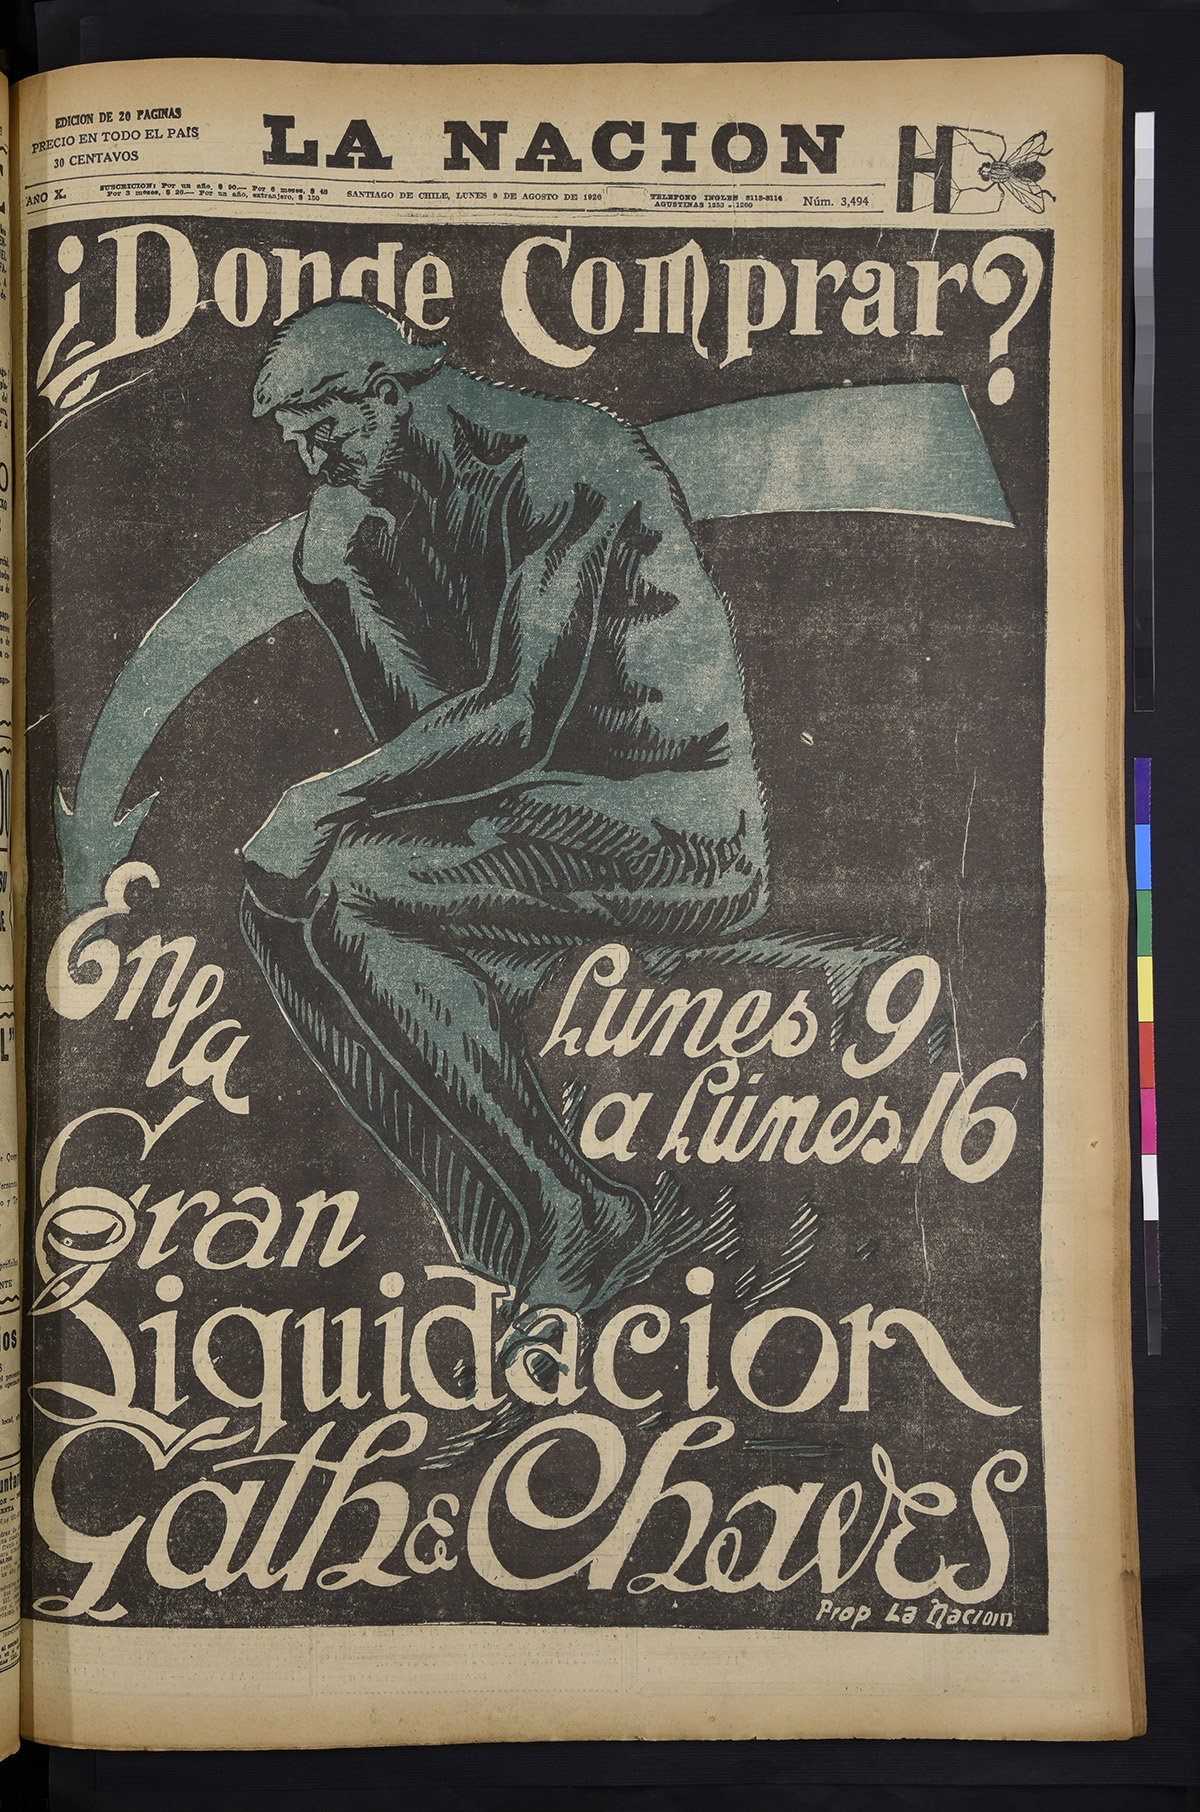 EDICION DE 20 PAGINAS
PRECIO EN TODO EL PAÍS
30 CENTAVOS
LA NACION
H
AÑO X.
SUSCRICION: Por un año, $ 90.— Por 6 meses, $ 48
Por 3 meses, $ 26.— Por un año, extranjero, $ 150
SANTIAGO DE CHILE, LUNES 9 DE AGOSTO DE 1926
TELEFONO INGLES 8113-8114
AGUSTINAS 1253 - 1260
Núm. 3,494
¿Donde Comprar?
En la
Lunes 9
a Lunes 16
Gran
Liquidacion
Gath & Chaves
Prop La Nacion